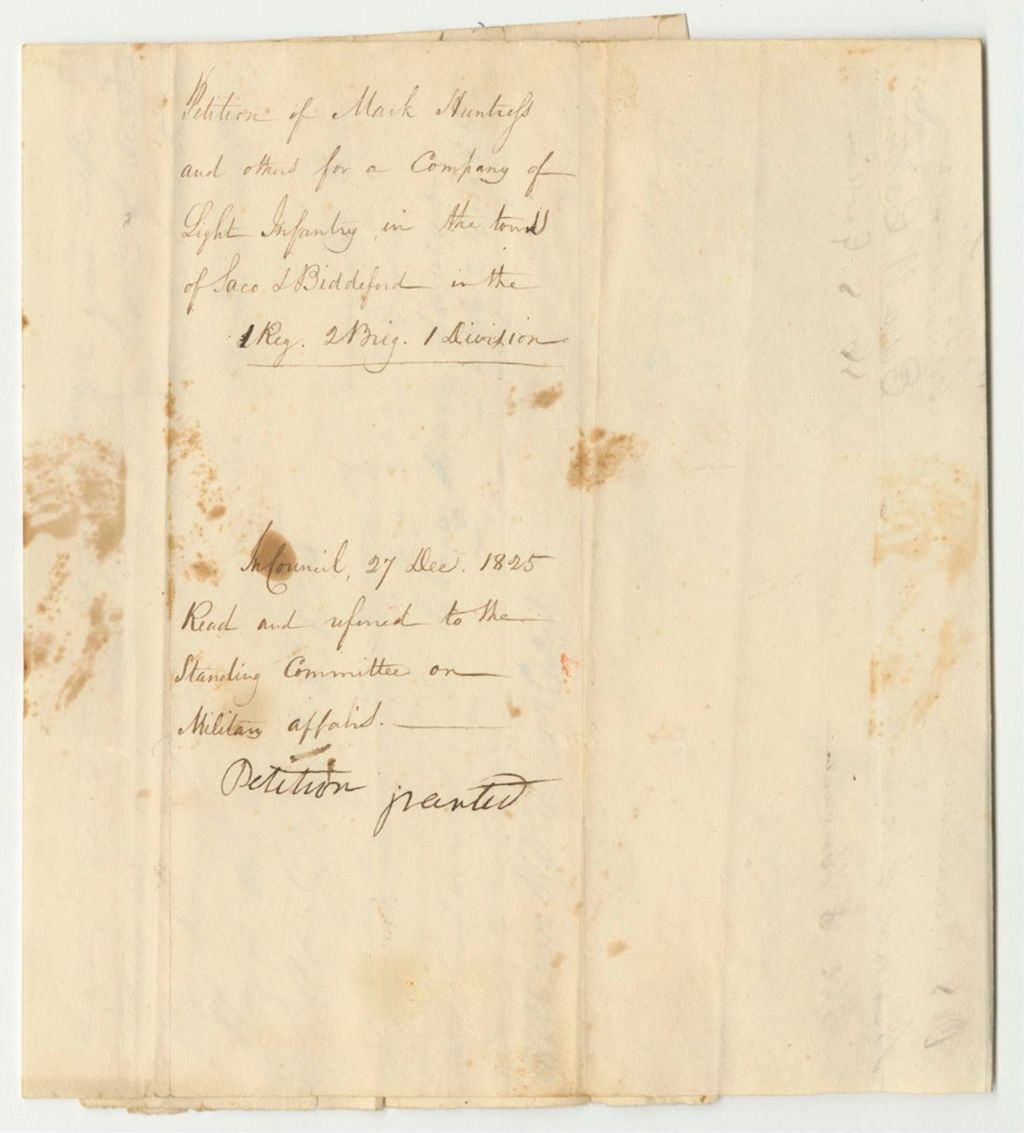 Petition of Mark Huntress
and others for a Company of
Light Infantry, in the towns
of Saco & Biddeford in the
1 Reg. 2 Brig. 1 Division
In Council, 27 Dec. 1825
Read and referred to the
Standing Committee on
Military affairs.
Petition granted